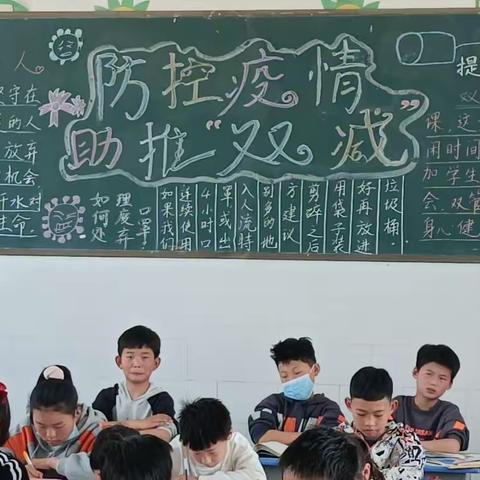 人.
守在
的人
放弃
机会
汗水对
生命.
防控疫情
助推“双减”
如何处
理废弃
口罩:
如果我们
连续使用
4小时口
罩或出
入人流特
别多的地
方建议
剪碎之后
用袋子装
好再放进
垃圾桶.
提
双
课,这
用时间
加学生
会.双管
身心健